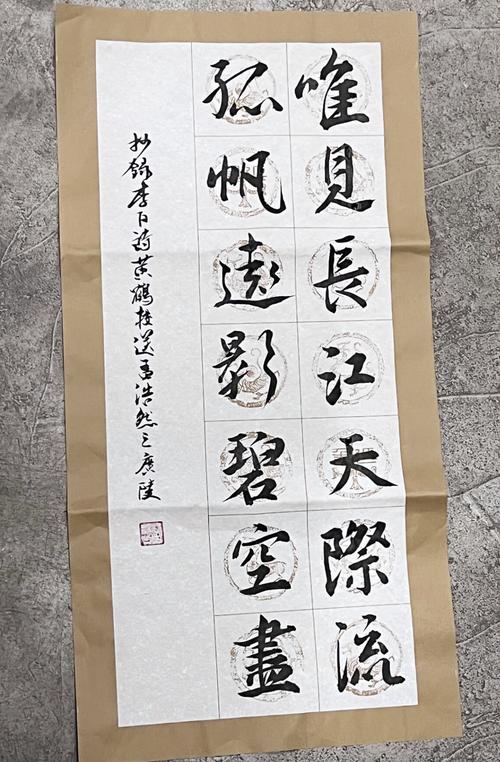 唯見長江天際流
孤帆遠影碧空盡
抄錄李白詩黃鶴樓送孟浩然之廣陵